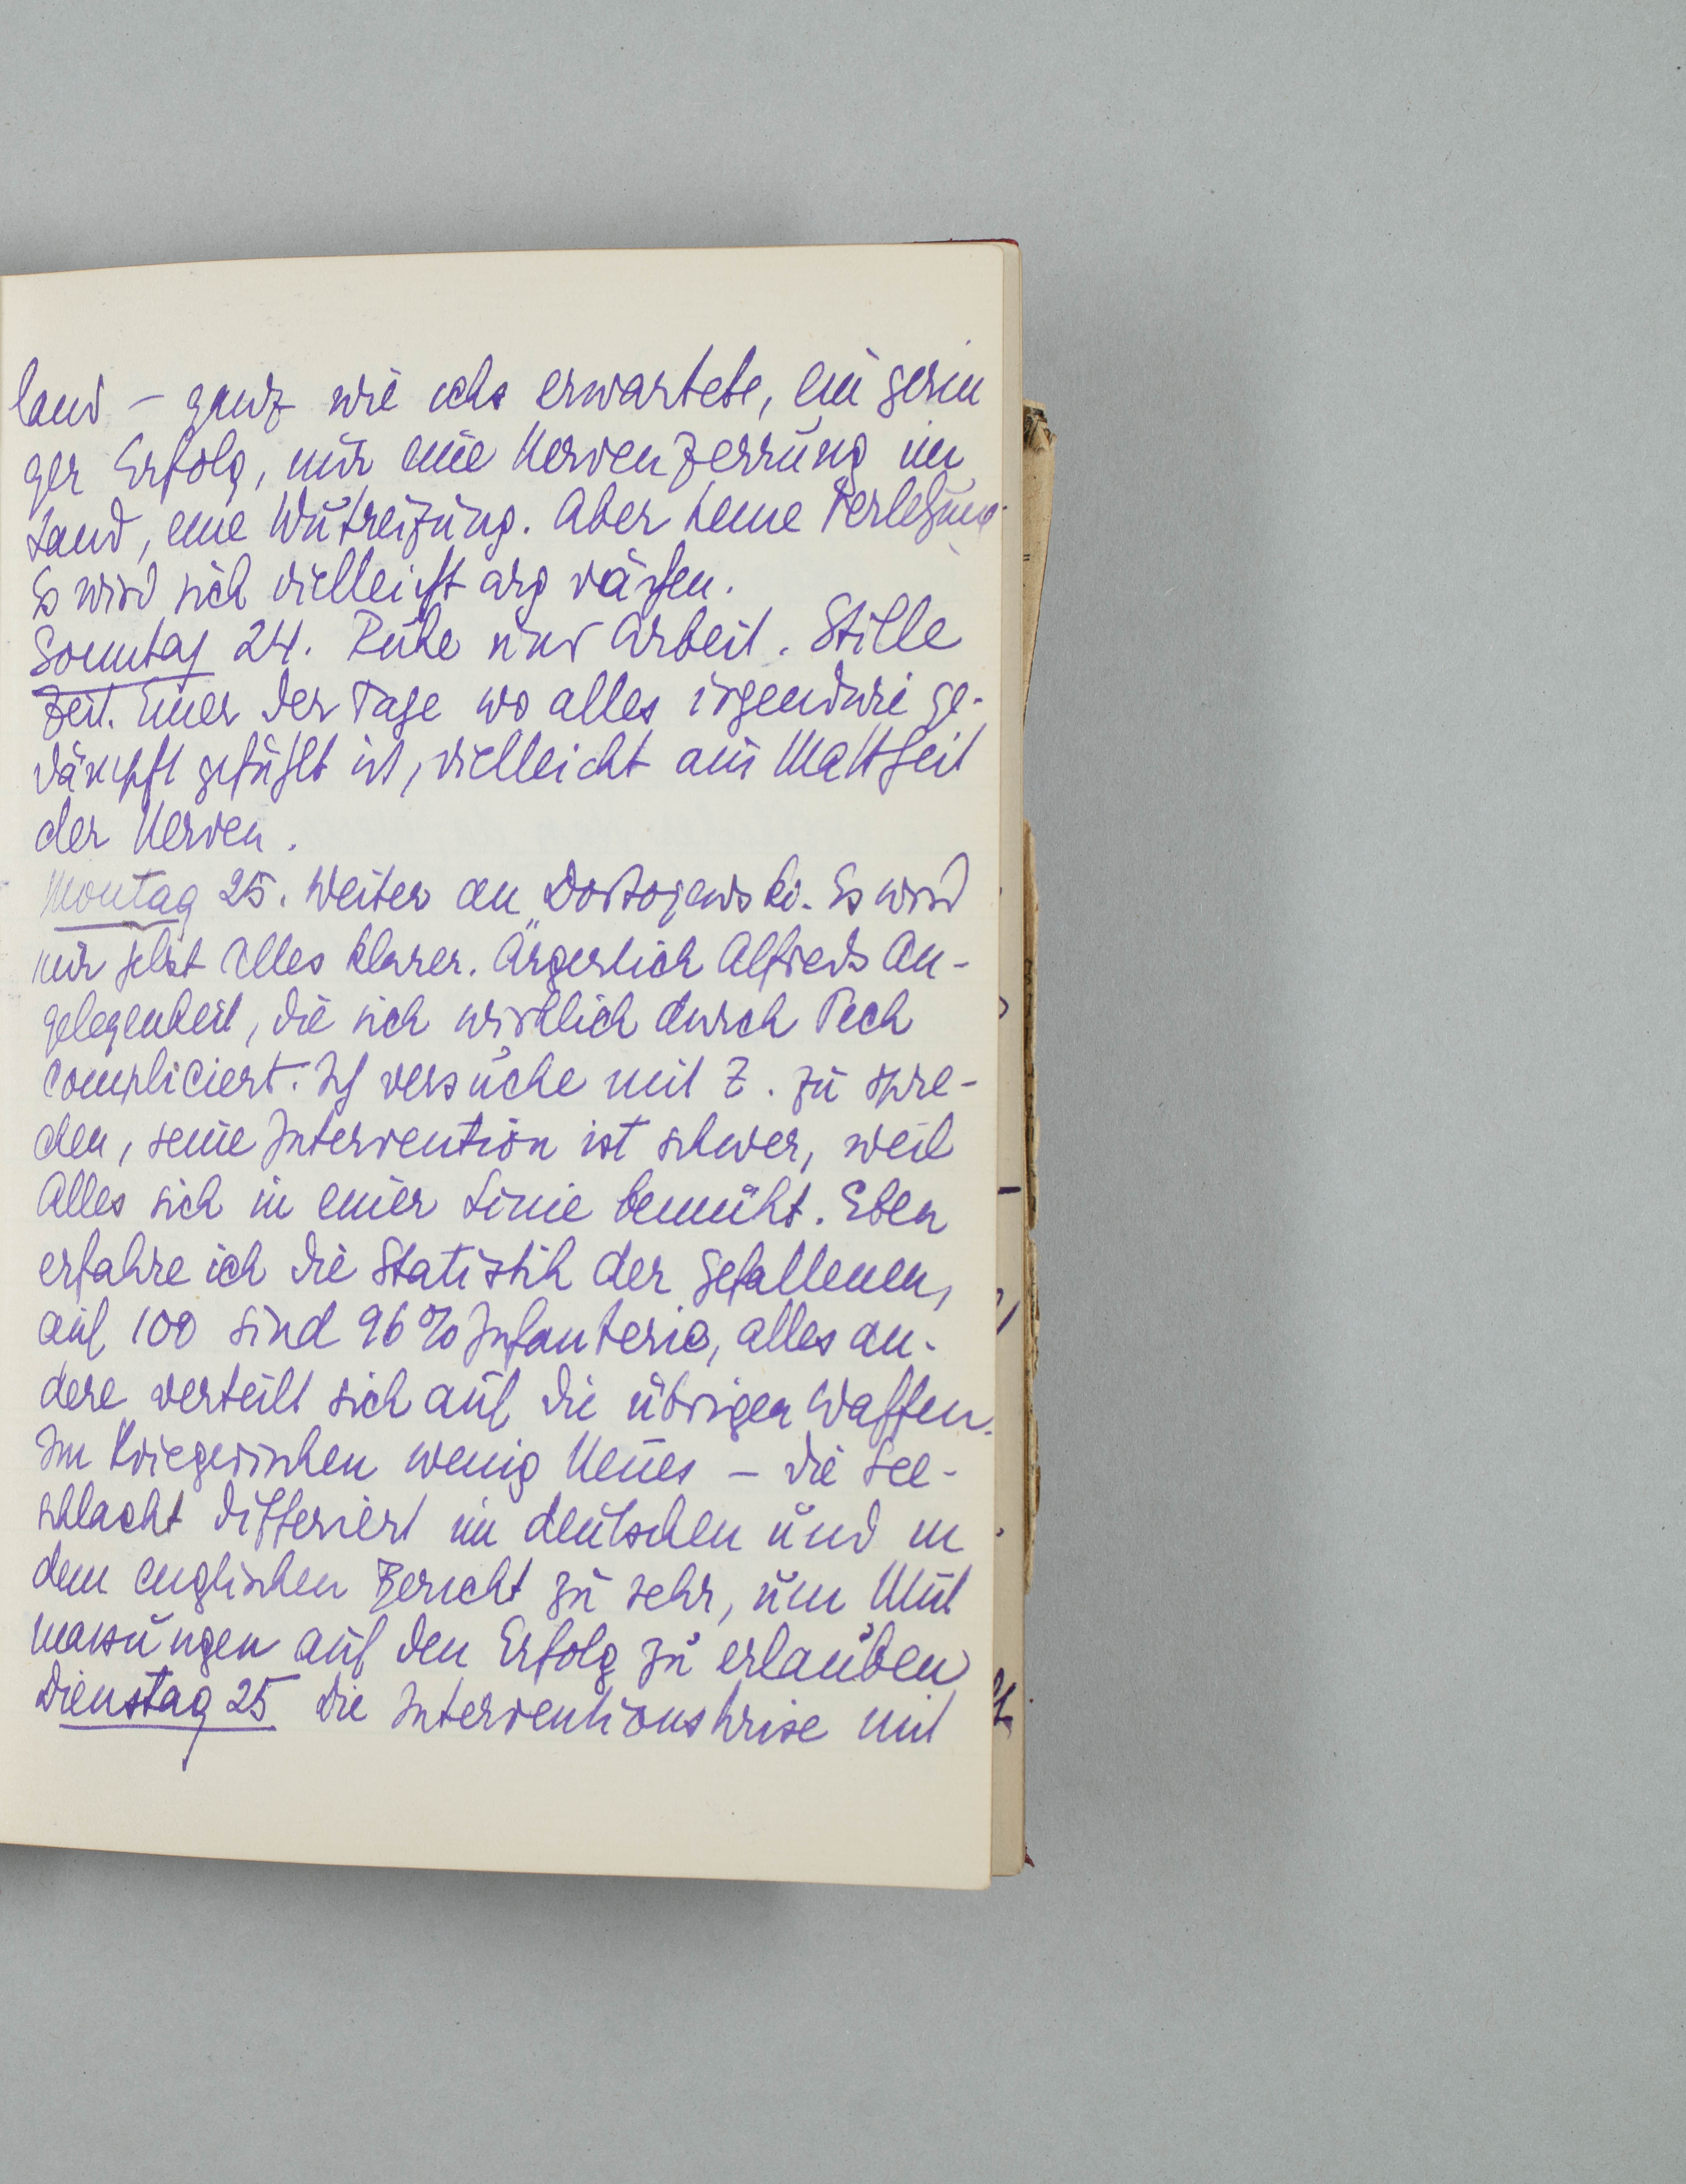 land – ganz wie ichs erwartete, ein gerin
ger Erfolg, nur eine Nervenzerrung im
Land, eine Wutreizung. Aber keine Verletzung.
Es wird sich vielleicht arg rächen.
Sonntag 24. Ruhe und Arbeit. Stille
Zeit. Einer der Tage wo alles irgendwie ge-
dämpft gefühlt ist, vielleicht aus Mattheit
der Nerven.
Montag 25. Weiter an Dostojewski. Es wird
mir selbst Alles klarer. Ärgerlich Alfreds An-
gelegenheit, die sich wirklich durch Pech
compliciert. Ich versuche mit Z. zu spre-
chen, seine Intervention ist schwer, weil
Alles sich in einer Linie bemüht. Eben
erfahre ich die Statistik der Gefallenen,
auf 100 sind 96% Infanterie, alles an-
dere verteilt sich auf die übrigen Waffen.
Im Kriegerischen wenig Neues – die See-
schlacht differiert im deutschen und in
dem englischen Bericht zu sehr, um Mut
massungen auf den Erfolg zu erlauben
Dienstag 25 Die Interventionskrise mit